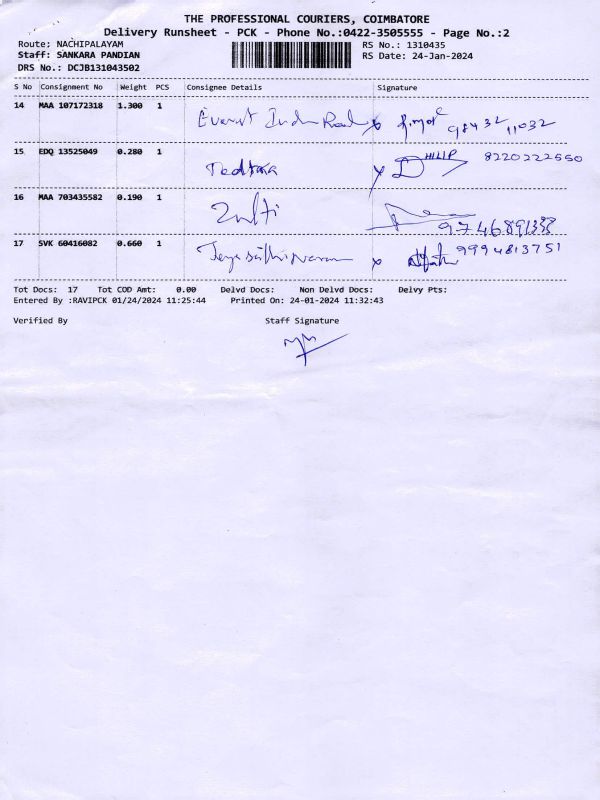 THE PROFESSIONAL COURIERS, COIMBATORE
Delivery Runsheet - PCK - Phone No.:0422-3505555 - Page No.:2
Route: NACHIPALAYAM RS No.: 1310435
Staff: SANKARA PANDIAN RS Date: 24-Jan-2024
DRS No.: DCJB131043502
S No Consignment No Weight PCS Consignee Details Signature
14 MAA 107172318 1.300 1
98432 11032
15 EDQ 13525049 0.280 1 PHILIP 8220222550
16 MAA 703435582 0.190 1
17 SVK 60416082 0.660 1 9994813751
Tot Docs: 17 Tot COD Amt: 0.00 Delvd Docs: Non Delvd Docs: Delvy Pts:
Entered By :RAVIPCK 01/24/2024 11:25:44 Printed On: 24-01-2024 11:32:43
Verified By Staff Signature